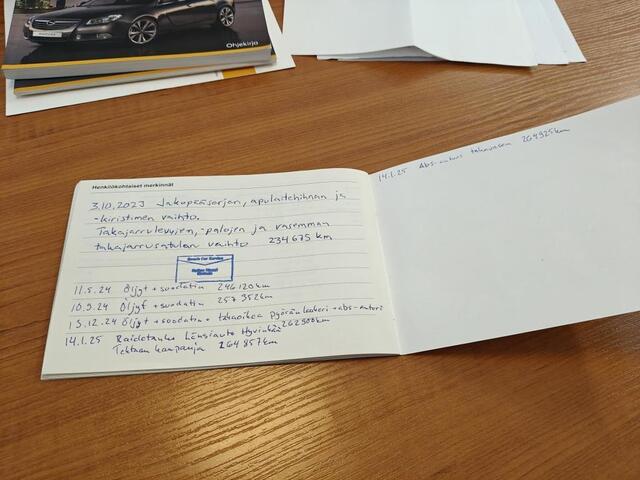 Ohjekirja
Henkilökohtaiset merkinnät
3.10.2023 Jakopääsarjan, apulaitehihnan ja
-kiristimen vaihto.
Takajarrulevyjen, -palojen ja vasemman
takajarrusatulan vaihto 234 675 km
11.5.24 Öljyt + suodatin 246120km
10.9.24 Öljyt + suodatin 257 352km
13.12.24 Öljyt + suodatin + takaoikea pyöränlaakeri + abs-anturi
262900km
14.1.25 Raidetanko Länsiauto Hyvinkää
Tehtaan kampanja 264857km
14.1.25 Abs-anturi takavasen 264925km